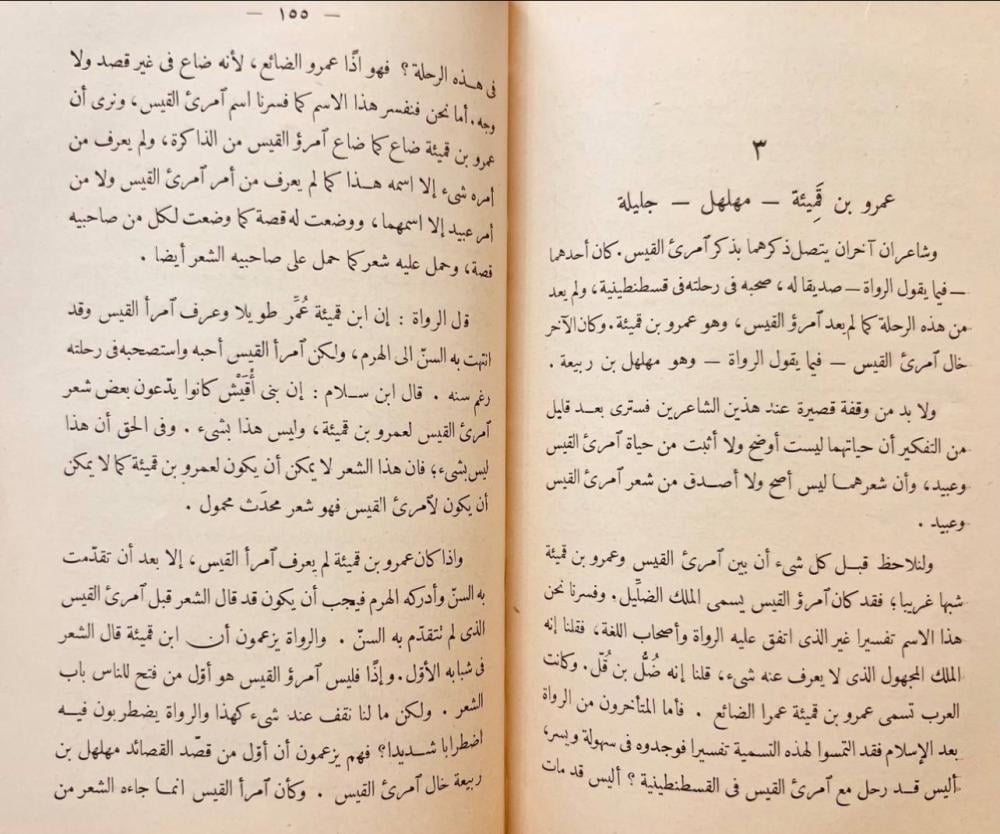 ٣
عمرو بن قَمِيئة – مهلهل – جليلة
وشاعران آخران يتصل ذكرهما بذكر آمرئ القيس. كان أحدهما
– فيما يقول الرواة – صديقا له، صحبه فى رحلته فى قسطنطينية، ولم يعد
من هذه الرحلة كما لم يعد آمرؤ القيس، وهو عمرو بن قميئة. وكان الآخر
خال آمرئ القيس – فيما يقول الرواة – وهو مهلهل بن ربيعة .
ولا بد من وقفة قصيرة عند هذين الشاعرين فسترى بعد قليل
من التفكير أن حياتهما ليست أوضح ولا أثبت من حياة آمرئ القيس
وعبيد، وأن شعرهما ليس أصح ولا أصدق من شعر آمرئ القيس
وعبيد .
ولنلاحظ قبل كل شىء أن بين آمرئ القيس وعمرو بن قميئة
شبها غريبا؛ فقد كان آمرؤ القيس يسمى الملك الضلِّيل. وفسرنا نحن
هذا الاسم تفسيرا غير الذى اتفق عليه الرواة وأصحاب اللغة، فقلنا إنه
الملك المجهول الذى لا يعرف عنه شىء، قلنا إنه ضُلُّ بن قُلّ. وكانت
العرب تسمى عمرو بن قميئة عمرا الضائع . فأما المتأخرون من الرواة
بعد الإسلام فقد التمسوا لهذه التسمية تفسيرا فوجدوه فى سهولة ويسر،
أليس قد رحل مع آمرئ القيس فى القسطنطينية ؟ أليس قد مات
– ١٥٥ –
فى هذه الرحلة ؟ فهو اذًا عمرو الضائع، لأنه ضاع فى غير قصد ولا
وجه. أما نحن فنفسر هذا الاسم كما فسرنا اسم آمرئ القيس، ونرى أن
عمرو بن قميئة ضاع كما ضاع آمرؤ القيس من الذاكرة، ولم يعرف من
أمره شىء إلا اسمه هذا كما لم يعرف من أمر آمرئ القيس ولا من
أمر عبيد إلا اسمهما، ووضعت له قصة كما وضعت لكل من صاحبيه
قصة، وحمل عليه شعر كما حمل على صاحبيه الشعر أيضا .
قل الرواة : إن ابن قميئة عُمِّر طويلا وعرف آمرأ القيس وقد
انتهت به السنّ الى الهرم، ولكن آمرأ القيس أحبه واستصحبه فى رحلته
رغم سنه . قال ابن سلام : إن بنى أُقَيْش كانوا يدّعون بعض شعر
آمرئ القيس لعمرو بن قميئة، وليس هذا بشىء . وفى الحق أن هذا
ليس بشىء؛ فان هذا الشعر لا يمكن أن يكون لعمرو بن قميئة كما لا يمكن
أن يكون لآمرئ القيس فهو شعر محدَث محمول .
واذا كان عمرو بن قميئة لم يعرف آمرأ القيس، إلا بعد أن تقدّمت
به السنّ وأدركه الهرم فيجب أن يكون قد قال الشعر قبل آمرئ القيس
الذى لم تتقدّم به السنّ . والرواة يزعمون أن ابن قميئة قال الشعر
فى شبابه الأوّل. وإذًا فليس آمرؤ القيس هو أوّل من فتح للناس باب
الشعر . ولكن ما لنا نقف عند شىء كهذا والرواة يضطربون فيه
اضطرابا شديدا؟ فهم يزعمون أن أوّل من قصّد القصائد مهلهل بن
ربيعة خال آمرئ القيس . وكأن آمرأ القيس انما جاءه الشعر من